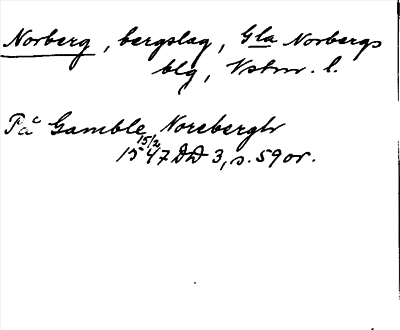 Norberg, bergslag, Gla Norbergs
blg, Vstm. l.
På Gamble Norebergh
15/2
1547 DD 3, s. 59 or.